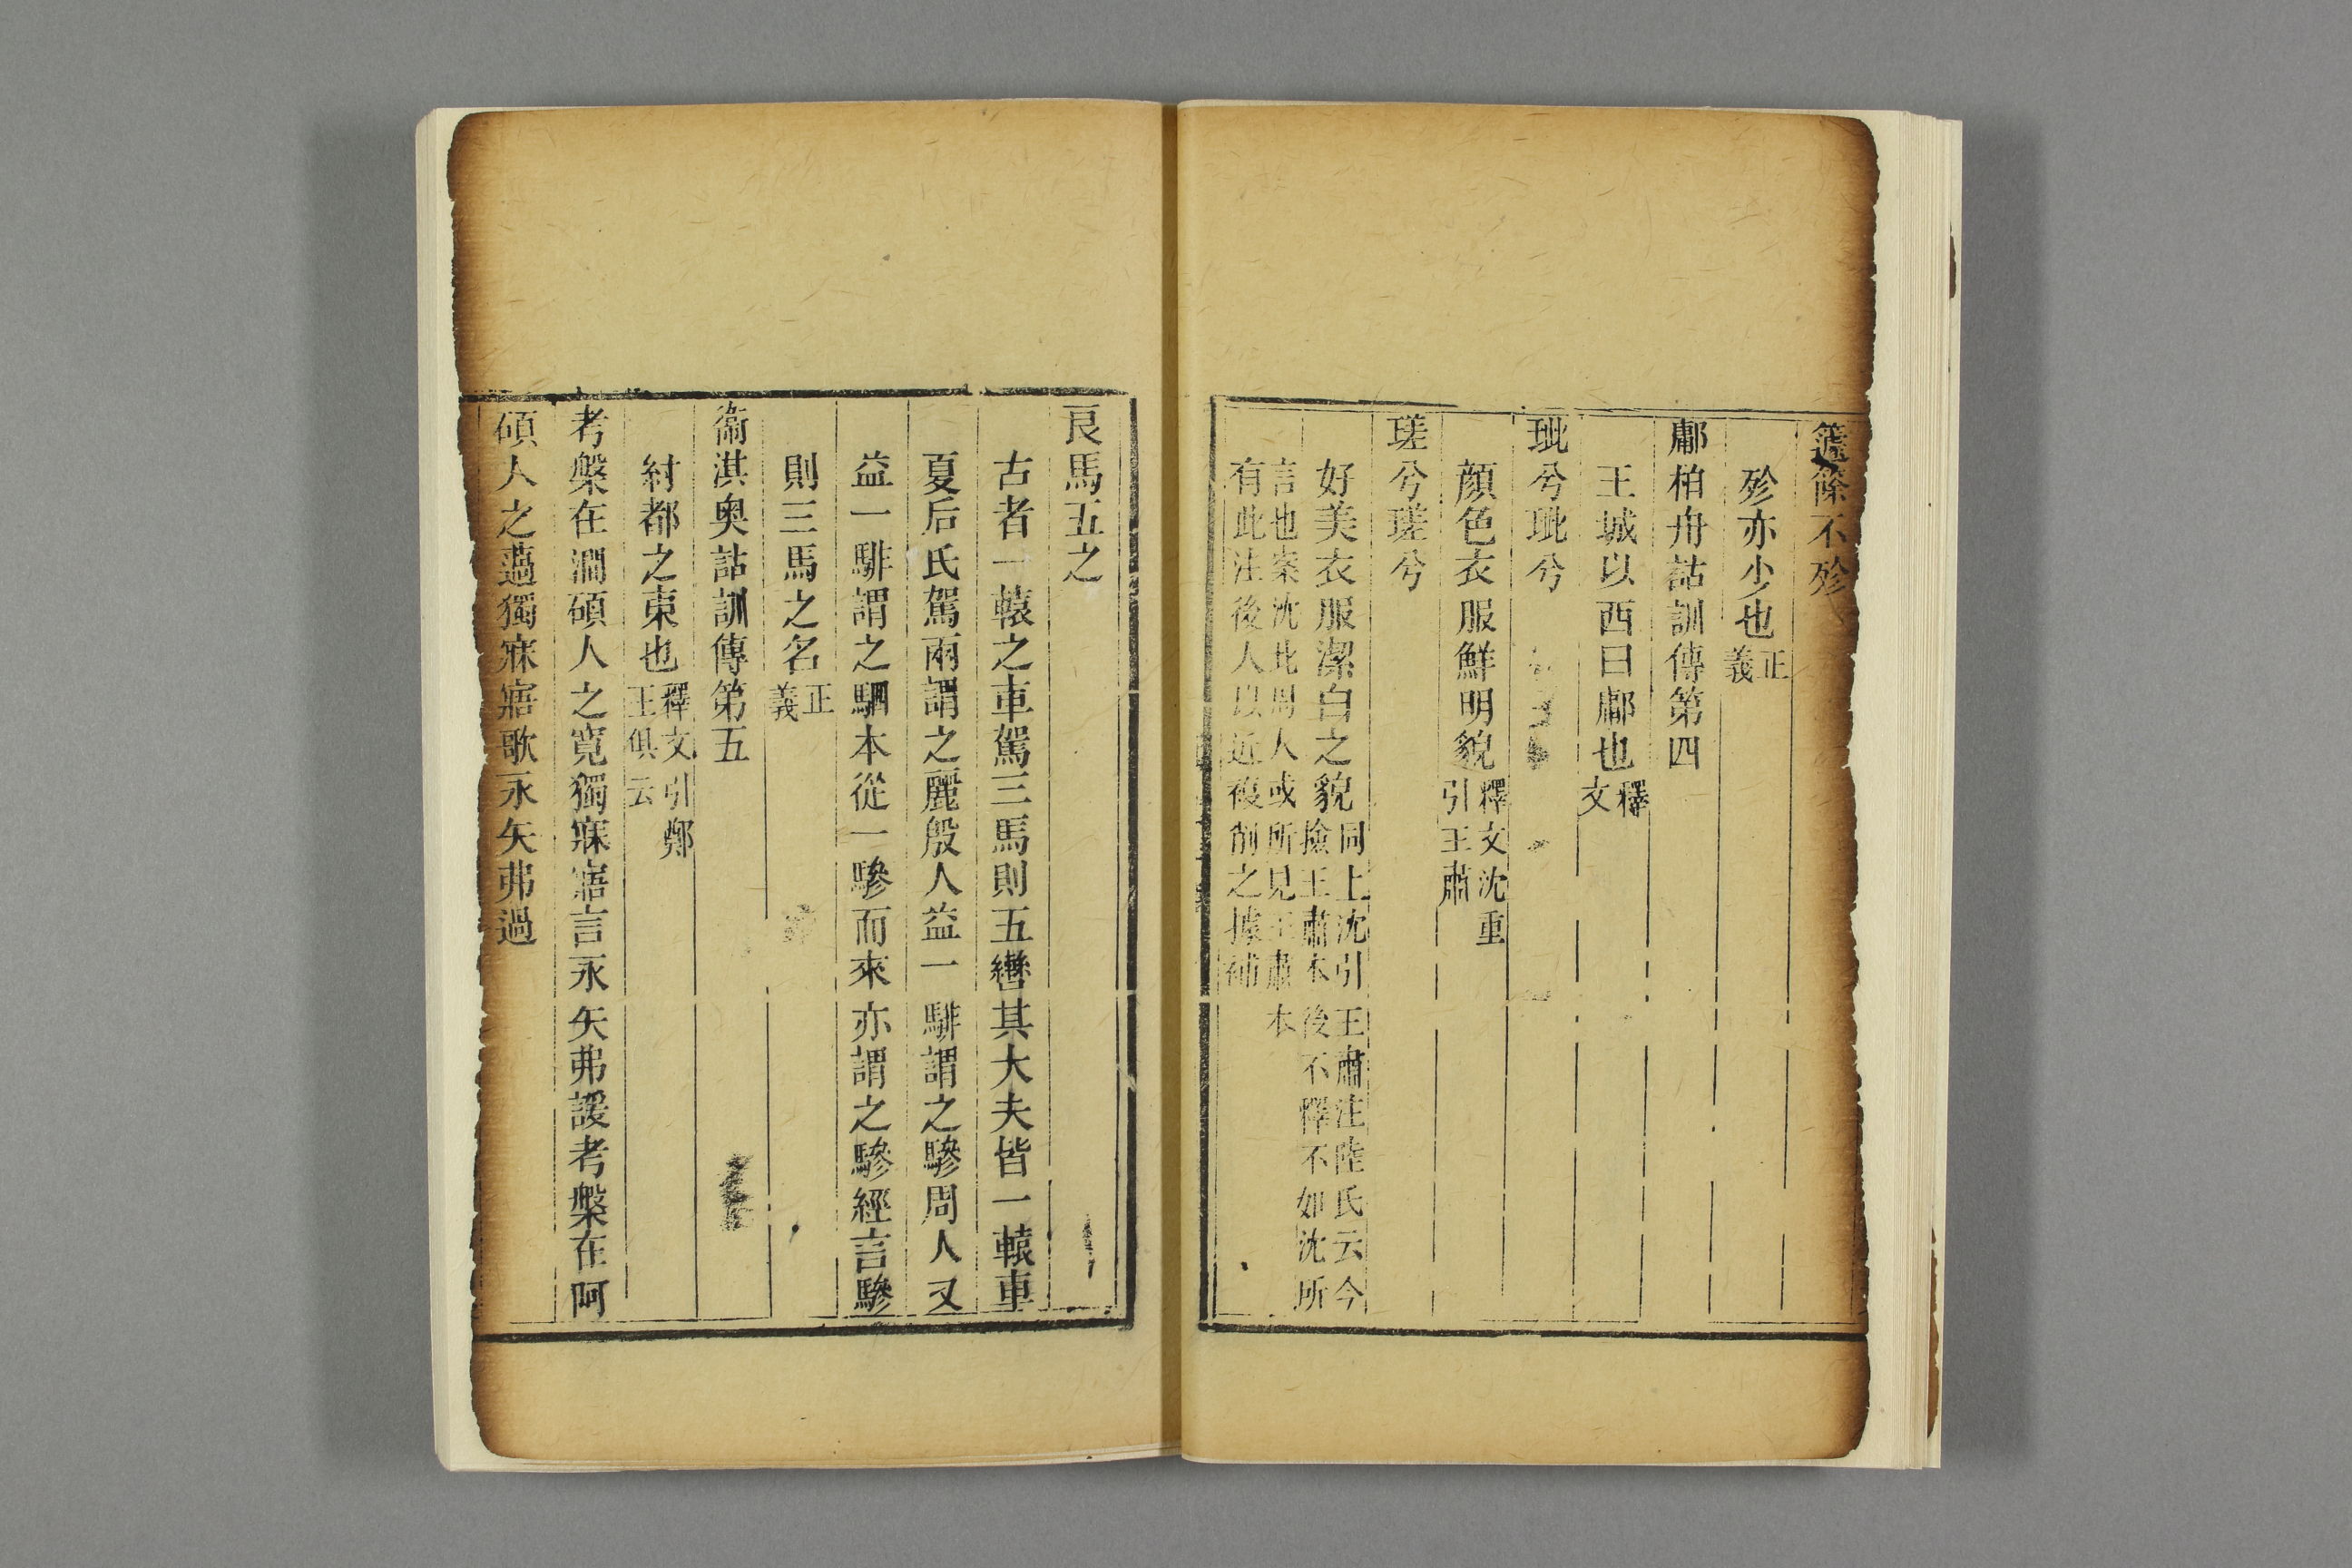 籧篨不殄
殄亦少也正義
鄘柏舟詁訓傳第四
王城以西曰鄘也釋文
玼兮玼兮
顏色衣服鮮明貌釋文沈重引王肅
瑳兮瑳兮
好美衣服潔白之貌同上沈引王肅注陸氏云今撿王肅本後不釋不如沈所
言也案沈北周人或所見王肅本有此注後人以近複削之據補
良馬五之
古者一轅之車駕三馬則五轡其大夫皆一轅車
夏后氏駕兩謂之麗殷人益一騑謂之驂周人又
益一騑謂之駟本從一驂而來亦謂之驂經言驂
則三馬之名正義
衞淇奧詁訓傳第五
紂都之東也釋文引鄭王俱云
考槃在澗碩人之寬獨寐寤言永矢弗諼考槃在阿
碩人之薖獨寐寤歌永矢弗過